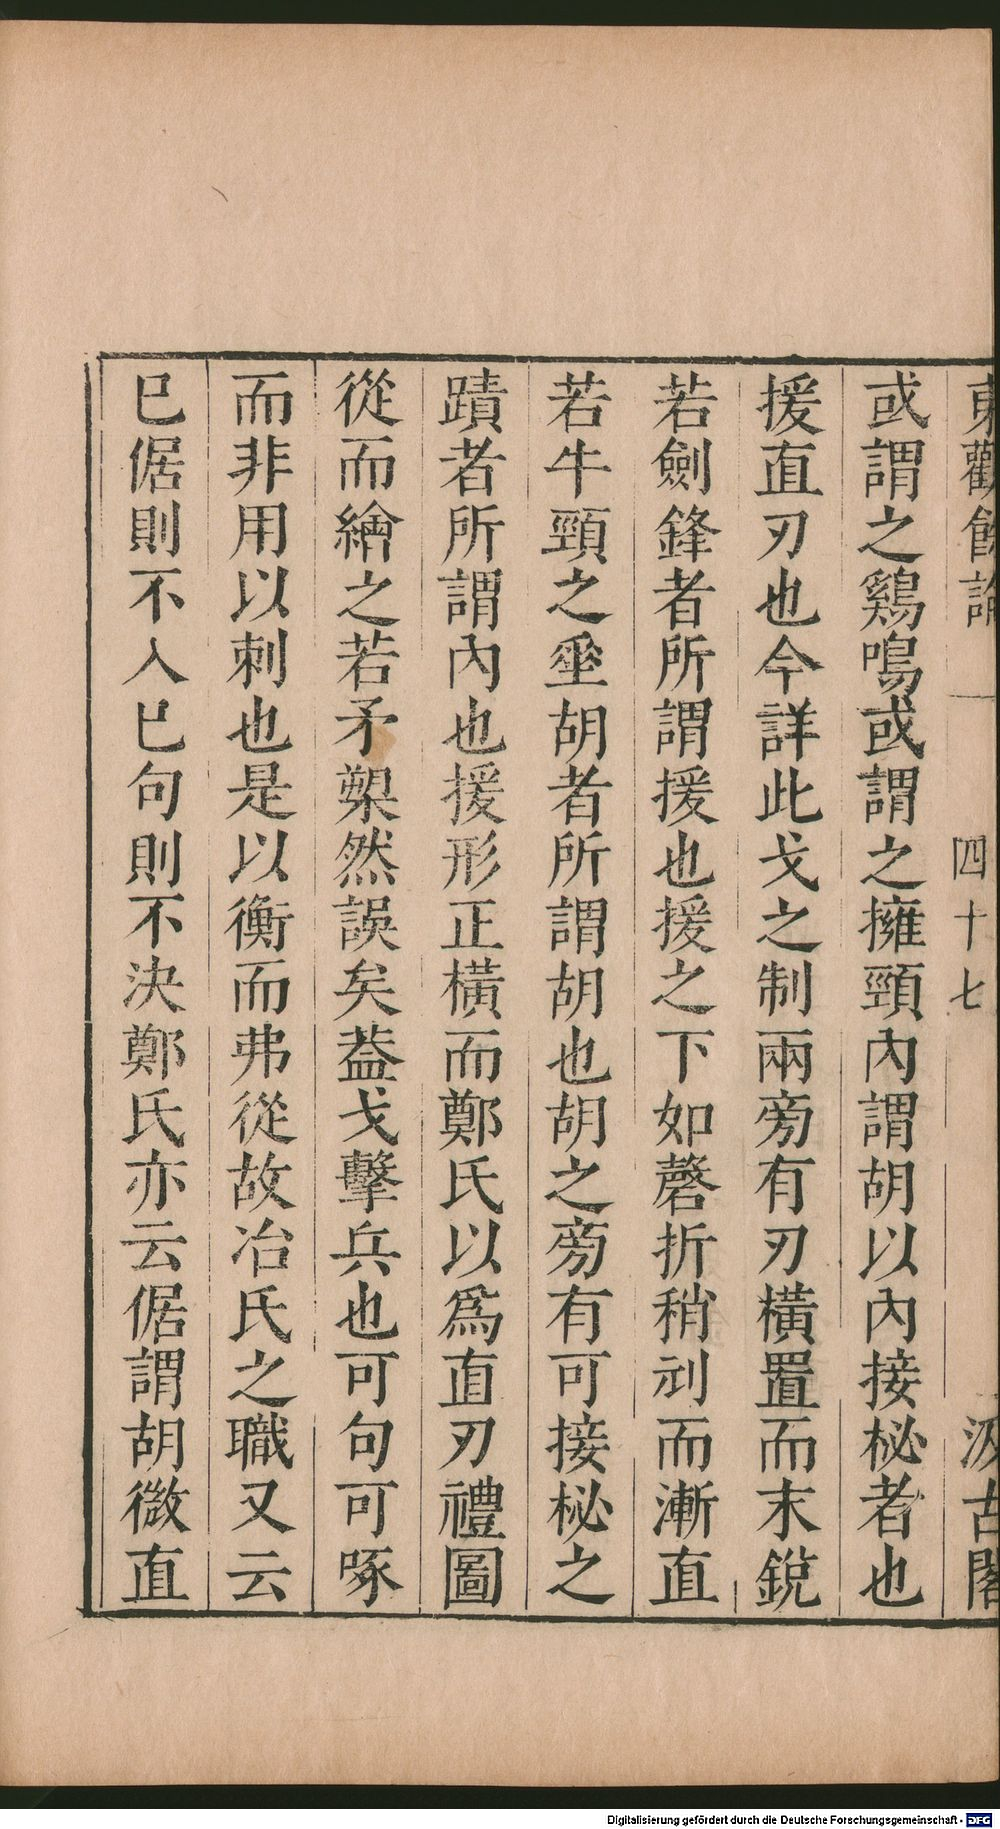 東觀餘論
四十七
汲古閣
或謂之鷄鳴或謂之擁頸內謂胡以內接柲者也
援直刃也今詳此戈之制兩旁有刃橫置而末銳
若劍鋒者所謂援也援之下如磬折稍刓而漸直
若牛頸之垂胡者所謂胡也胡之旁有可接柲之
蹟者所謂內也援形正橫而鄭氏以爲直刃禮圖
從而繪之若矛槊然誤矣葢戈擊兵也可句可啄
而非用以刺也是以衡而弗從故冶氏之職又云
巳倨則不入巳句則不決鄭氏亦云倨謂胡微直
Digitalisierung gefördert durch die Deutsche Forschungsgemeinschaft - DFG